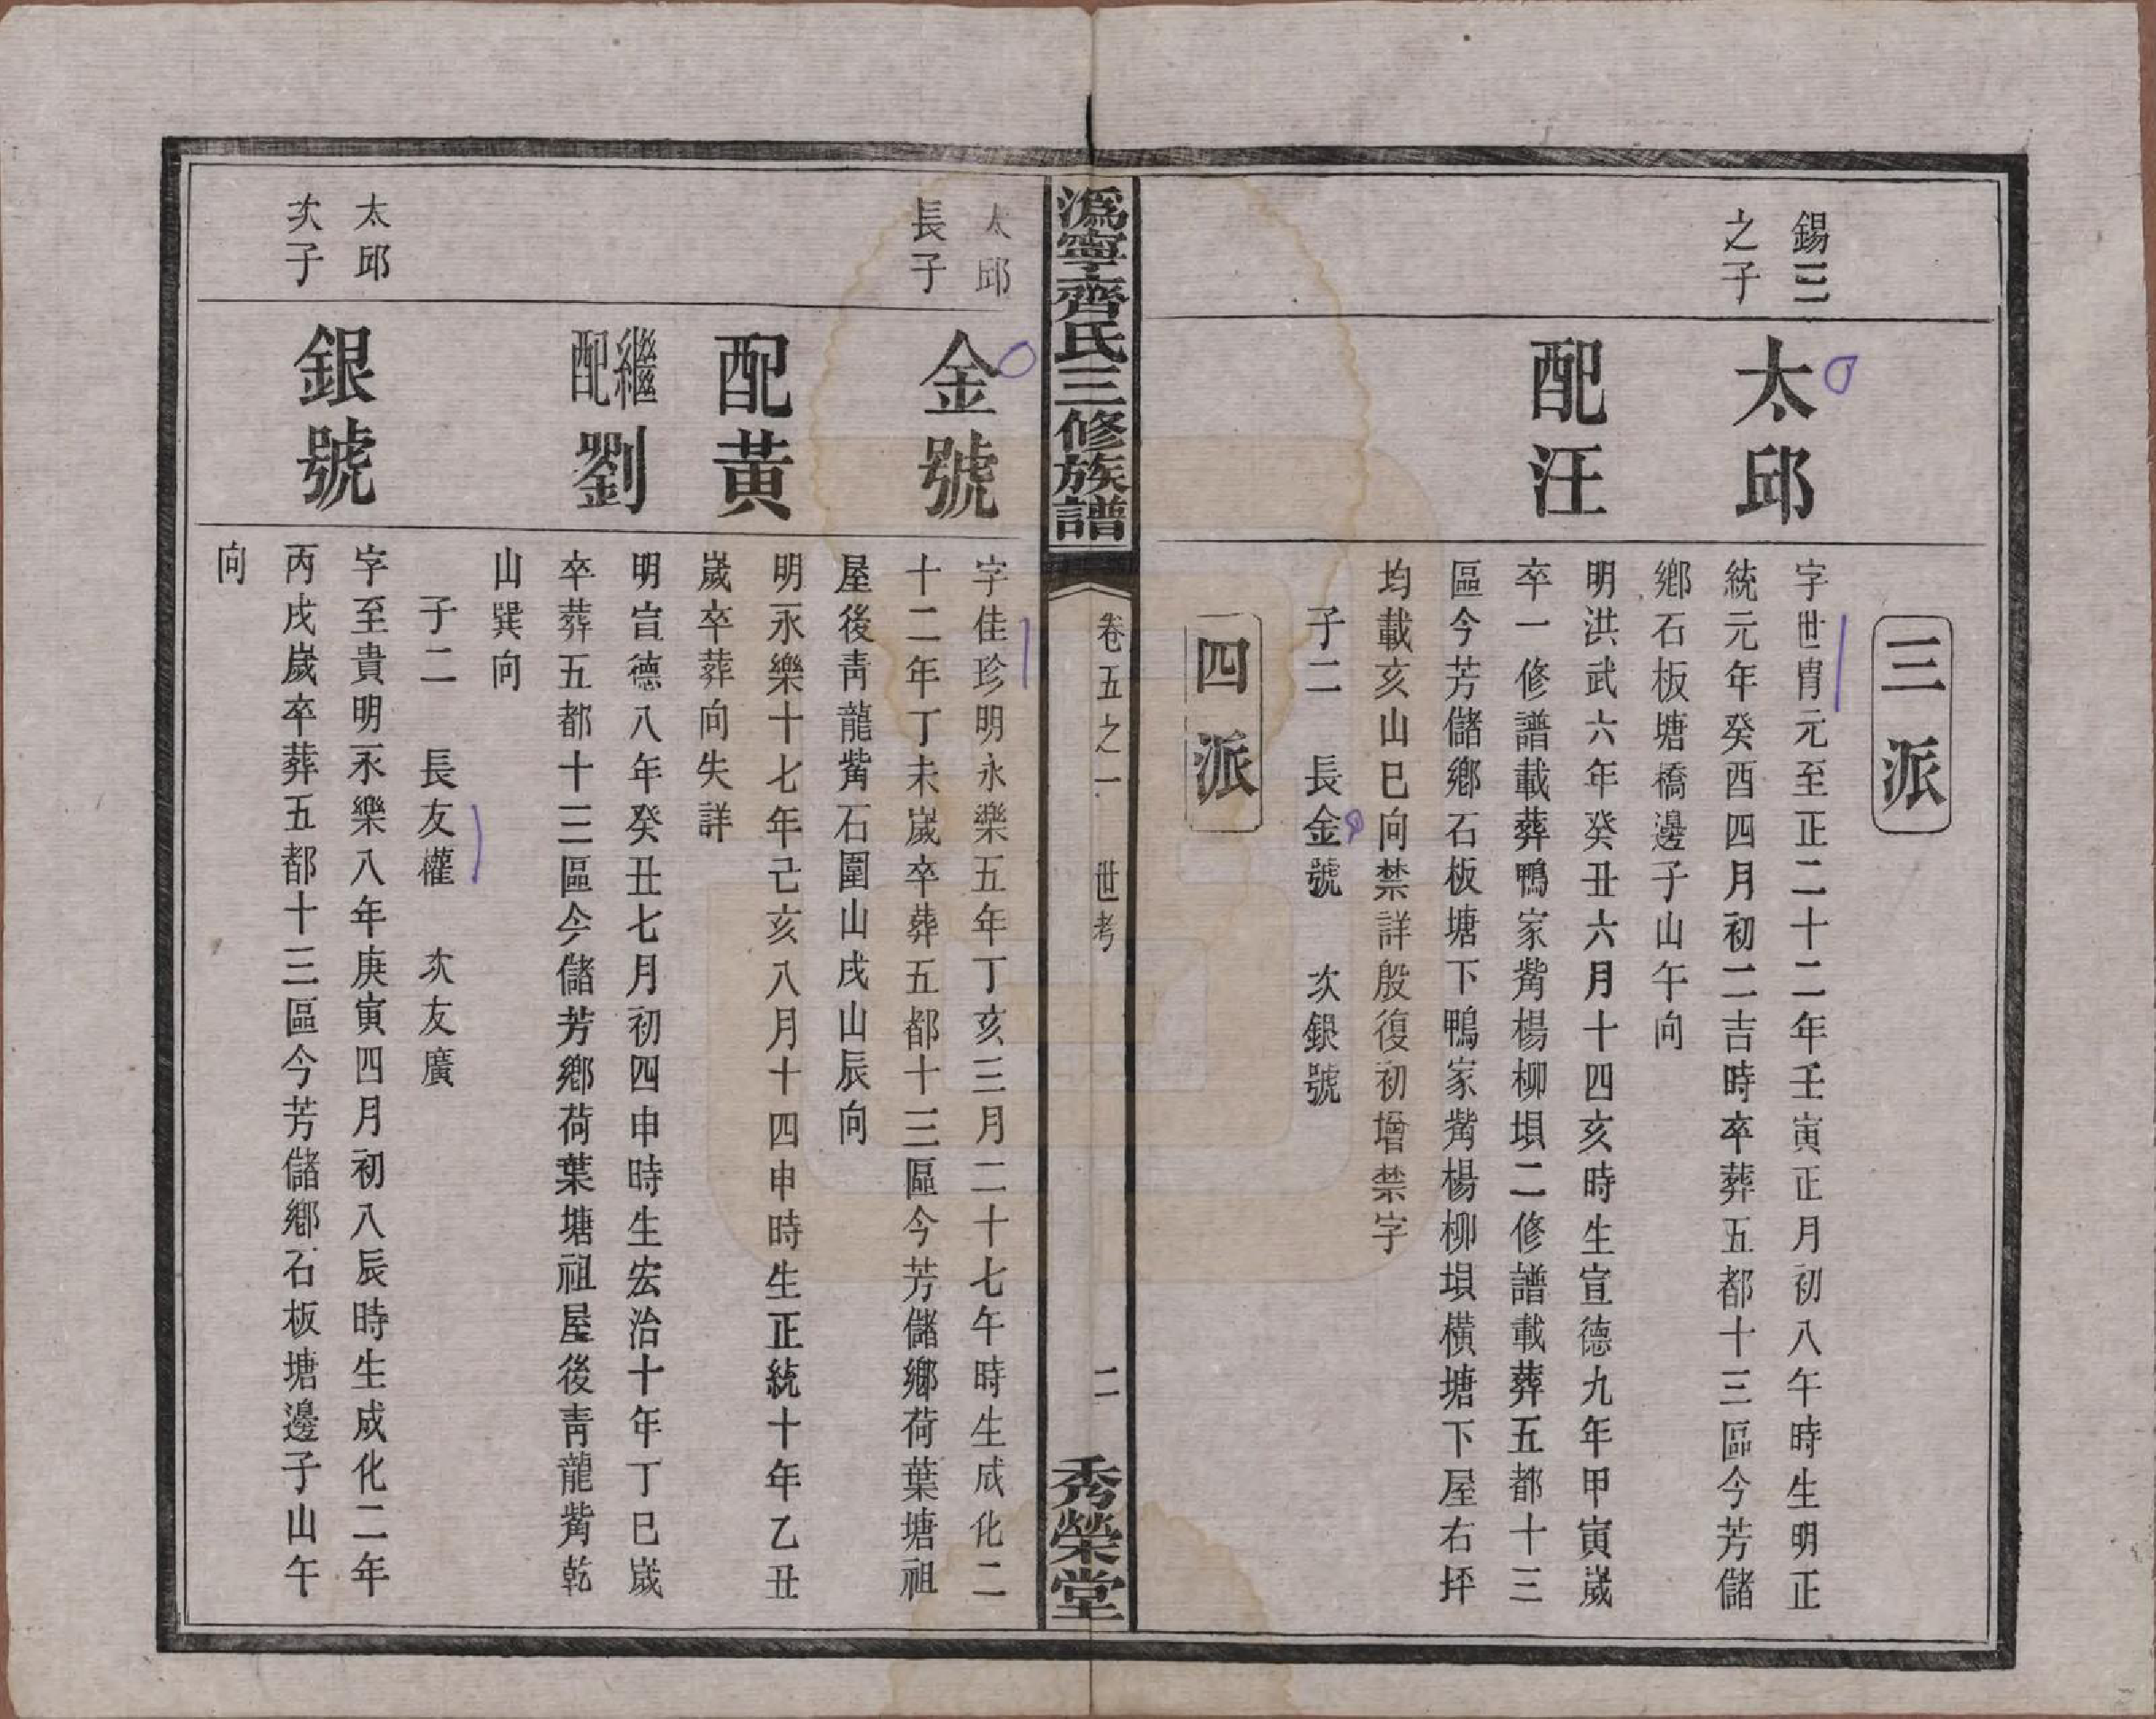 三派
錫三
之子
太邱
字世胄元至正二十二年壬寅正月初八午時生明正
統元年癸酉四月初二吉時卒葬五都十三區今芳儲
鄉石板塘橋邊子山午向
配汪
明洪武六年癸丑六月十四亥時生宣德九年甲寅歲
卒一修譜載葬鴨家觜楊柳垻二修譜載葬五都十三
區今芳儲鄉石板塘下鴨家觜楊柳垻橫塘下屋右坪
均載亥山巳向禁詳殷復初增禁字
子二　長金號　次銀號
四派
溈寧齊氏三修族譜
卷五之一　世考
二
秀榮堂
太邱
長子
金號
字佳珍明永樂五年丁亥三月二十七午時生成化二
十二年丁未歲卒葬五都十三區今芳儲鄉荷葉塘祖
屋後靑龍觜石圍山戌山辰向
配黃
明永樂十七年己亥八月十四申時生正統十年乙丑
歲卒葬向失詳
繼配劉
明宣德八年癸丑七月初四申時生宏治十年丁巳歲
卒葬五都十三區今儲芳鄉荷葉塘祖屋後靑龍觜乾
山巽向
子二　長友權　次友廣
太邱
次子
銀號
字至貴明永樂八年庚寅四月初八辰時生成化二年
丙戌歲卒葬五都十三區今芳儲鄉石板塘邊子山午
向